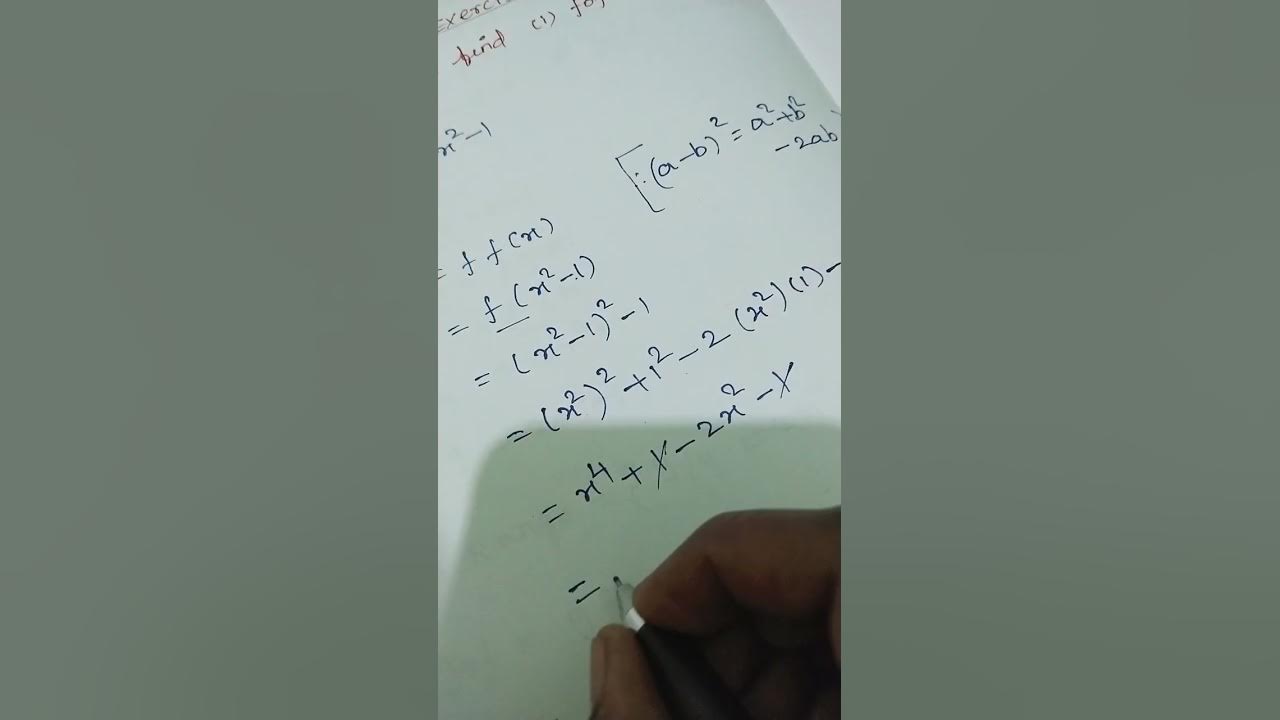 Exerci
find (1) fo
x²-1
[∵(a-b)² = a²+b²
-2ab
= f f(x)
= f(x²-1)
= (x²-1)²-1
= (x²)²+1²-2(x²)(1)-
= x⁴+1-2x²-1
=